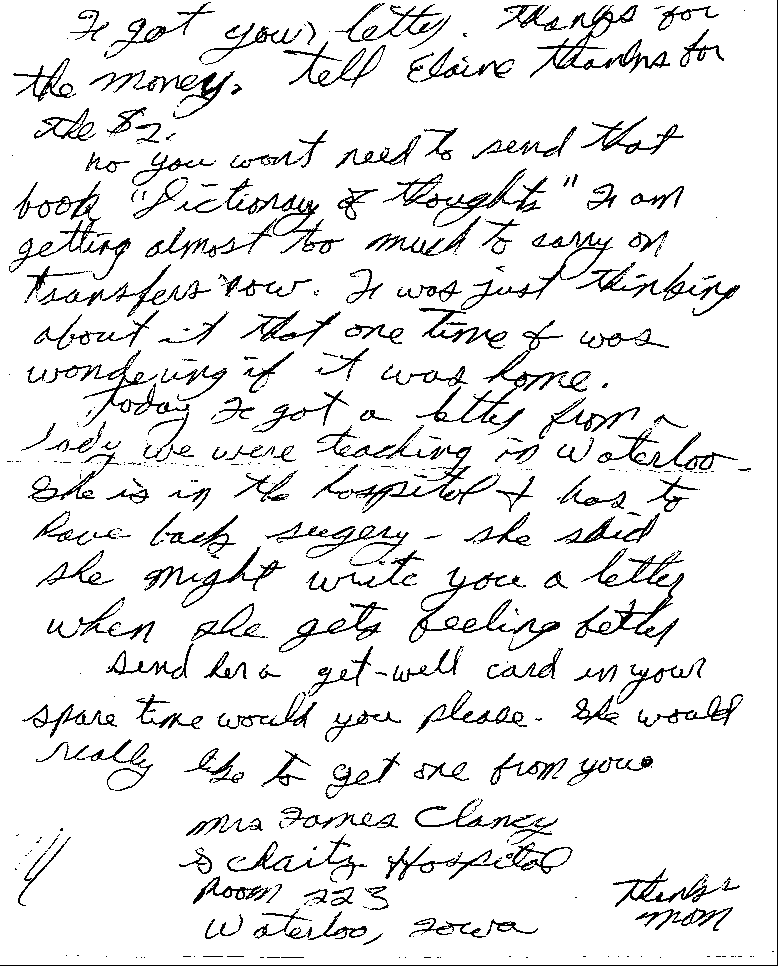 I got your letter. Thanks for
the money. tell Elaine thanks for
the $2.
no you wont need to send that
book "Dictionary of thoughts" I am
getting almost too much to carry on
transfers now. I was just thinking
about it that one time & was
wondering if it was home.
Today I got a letter from a
lady we were teaching in Waterloo.
She is in the hospital & has to
have back sugery - she said
she might write you a letter
when she gets feeling better
send her a get-well card in your
spare time would you please. She would
really like to get one from you.
Mrs James Clancy
Schoitz Hospital
Room 223
Waterloo, Iowa
Thanks
mom